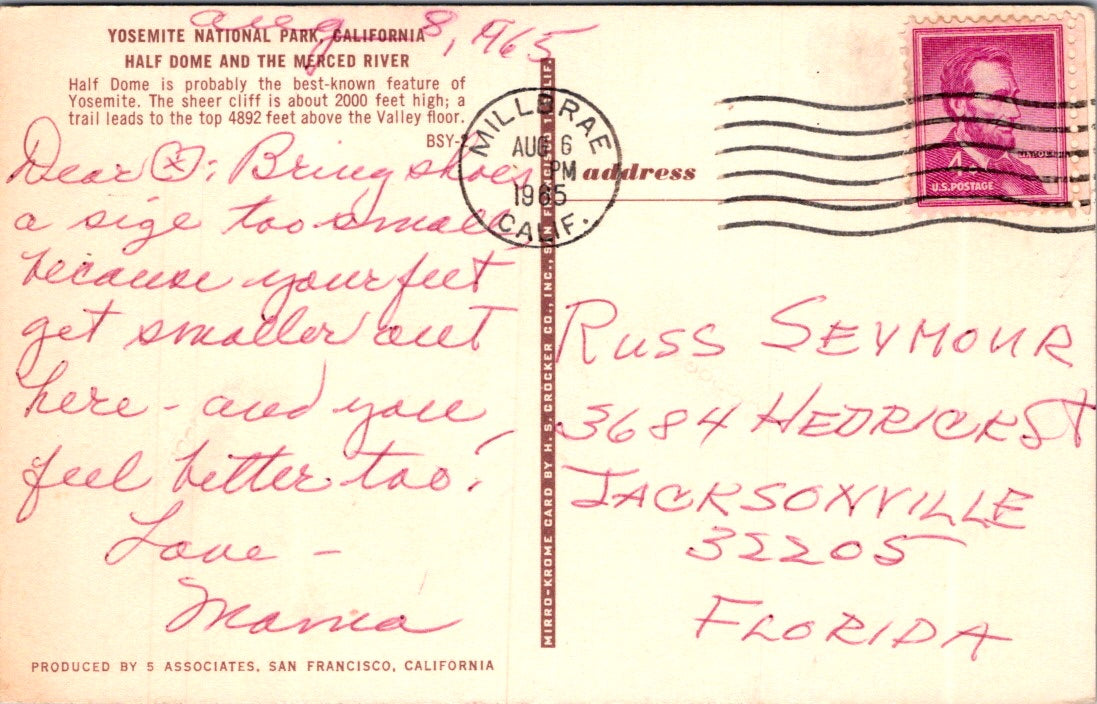 Aug 8, 1965
YOSEMITE NATIONAL PARK, CALIFORNIA
HALF DOME AND THE MERCED RIVER
Half Dome is probably the best-known feature of
Yosemite. The sheer cliff is about 2000 feet high; a
trail leads to the top 4892 feet above the Valley floor.
BSY-
Dear : Bring shoes
a size too small
because your feet
get smaller out
here - and you
feel better too!
Love -
Mama
PRODUCED BY 5 ASSOCIATES, SAN FRANCISCO, CALIFORNIA
MIRRO-KROME CARD BY H. S. CROCKER CO., INC., SAN F
MILLBRAE
AUG 6
PM
1965
CALIF.
address
4
U.S. POSTAGE
RUSS SEYMOUR
3684 HEDRICK ST
JACKSONVILLE
32205
FLORIDA